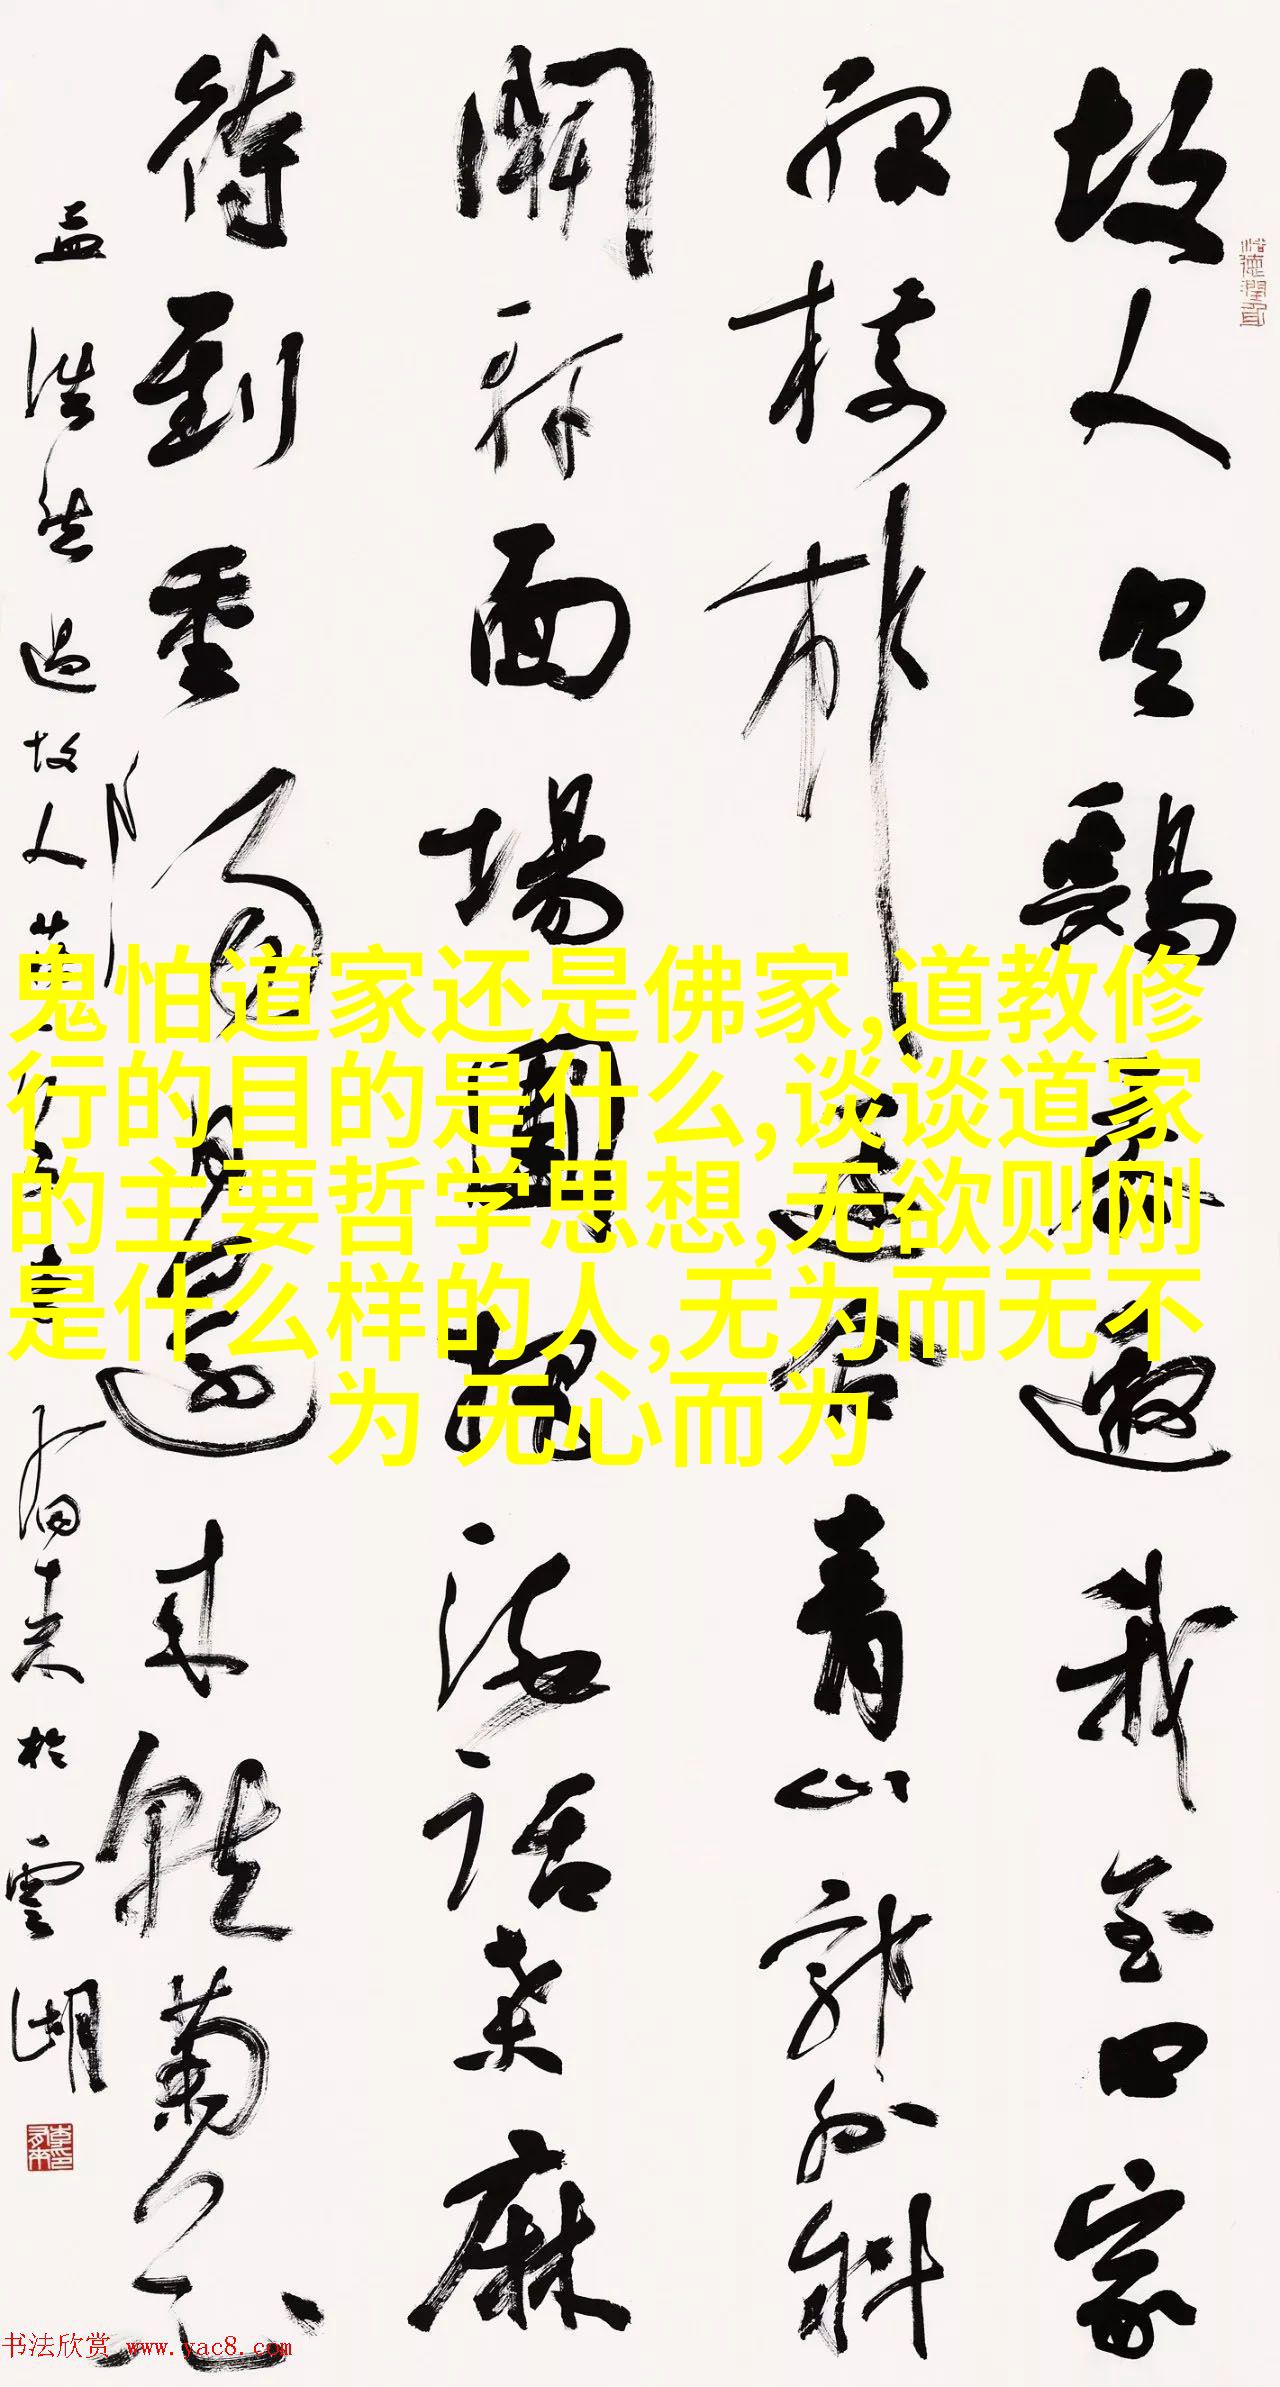 故人具鷄黍邀我至田家
綠樹村邊合青山郭外斜
開軒面場圃把酒話桑麻
待到重陽日還來就菊花
孟浩然過故人莊 有來於雲湖
浴德潤身
鬼怕道家还是佛家,道教修
行的目的是什么,谈谈道家
的主要哲学思想,无欲则刚
是什么样的人,无为而无不
为 无心而为
书法欣赏 www.yac8.com